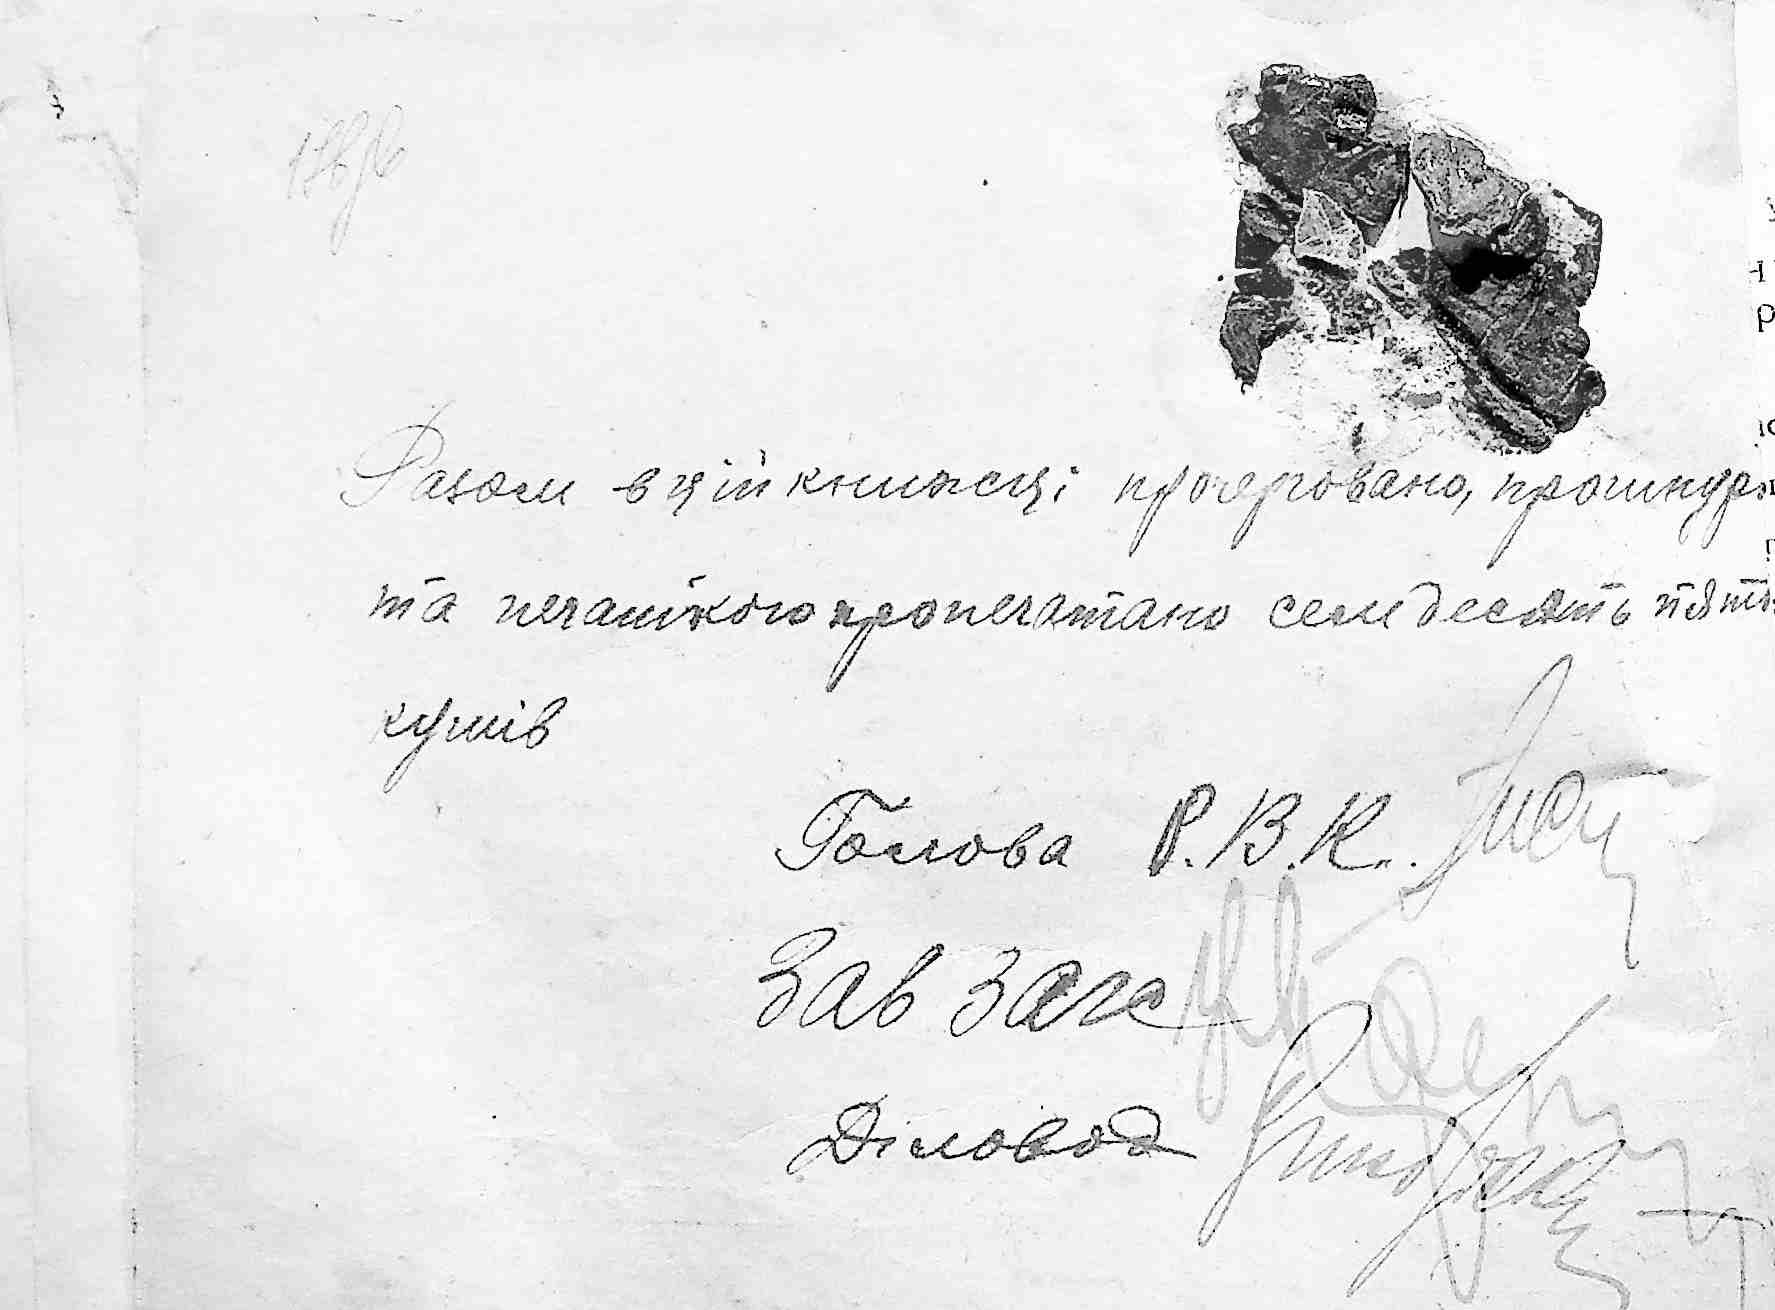 Разом в цій книжсці прочерговано, прошнуро
та печаткою пропечатано семдесять пять
кушів
Голова Р.В.К.
Зав Загс
Діловод